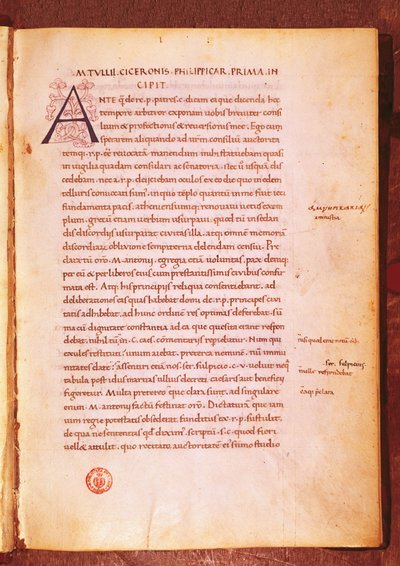 M. TVLLII. CICERONIS. PHILIPPICAR. PRIMA. IN
CIPIT
ANTE q̃ de r. p. patres. c. dicam ea que dicenda hoc
tempore arbitror exponam uobis breuiter consi
lium & profectionis & reuersionis meę. Ego cum
sperarem aliquando ad urm̃ consiliũ auctoritatẽ
r. p. eẽ reuocatã manendum mihi statuebam quasi
in uigilia quadam consulari ac senatoria. nec ũ usquã dis
cedebam. nec a. r. p. deiciebam oculos ex eo die quo in ędem
telluris conuocati sum'. in quo tẽplo quantũ in me fuit ieci
fundamenta pacis. atheniensiumq; renouaui uetus exem
plum. gręcũ etiam uerbum usurpaui. quo tũ in sedan
dis discordiis usurparat ciuitas illa. atq; omnẽ memoriã
discordiaꝝ obliuione sempiterna delendam censui. Pre
clara tũ orõ. M. antonij. egregia etiã uoluntas. pax deniq;
per eũ & per liberos eius cum prestantissimis ciuibus confir
mata est. Atq; his principiis reliqua consentiebant. ad
deliberationes eas quas habebat domi de. r. p. principes ciui
tatis adhibebat. ad hunc ordinẽ res optimas deferebat. sũ
ma cũ dignitate constantia ad ea que quesita erant respon
debat. nihil tũ nisi in. C. caes. commentariis repiebatur. Num qui
exules restituti? unum aiebat. preterea neminẽ. nũ immu
nitates datę? assenturi etiã nos. ser. sulpicio. c. v. uoluit neq̃
tabula post idus martias ullius decreti caesaris aut beneficij
figeretur. Multa pretereo eaque clara sunt. ad singulare
enim. M. antonij factũ festinat orõ. Dictaturã que iam
uim regie potestatis obsederat funditus ex. r. p. sustulit.
de qua ne sententias qd̃ dixim'. scriptũ. s. c. quod fieri
uell& attulit. quo recitato. auctoritatẽ ei summo studio
amnistia
ser. sulpicius
nulle respondebat
eaq; pclara